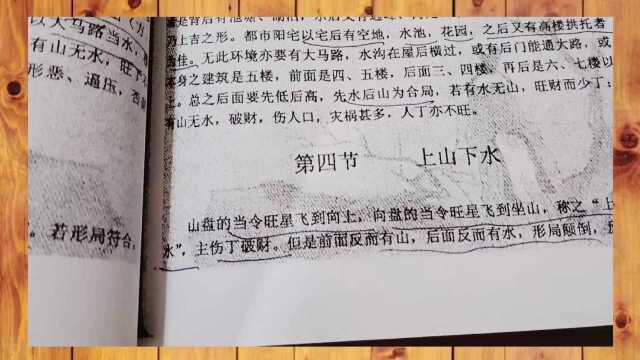 以大马路当水,
有山无水,旺丁
形恶、逼压,
若形局符合,
乃上吉之形。都市阳宅以宅后有空地,水池,花园,之后又有高楼拱托者
佳。无此环境亦要有大马路,水沟在屋后横过,或有后门能通大路,或
本身之建筑是五楼,前面是四、五楼,后面三、四楼,再后是六、七楼以
上。总之后面要先低后高,先水后山为合局,若有水无山,旺财而少丁;
有山无水,破财,伤人口,灾祸甚多,人丁亦不旺。
第四节 上山下水
山盘的当令旺星飞到向上,向盘的当令旺星飞到坐山,称之“上
水”,主伤丁破财。但是前面反而有山,后面反而有水,形局颠倒,